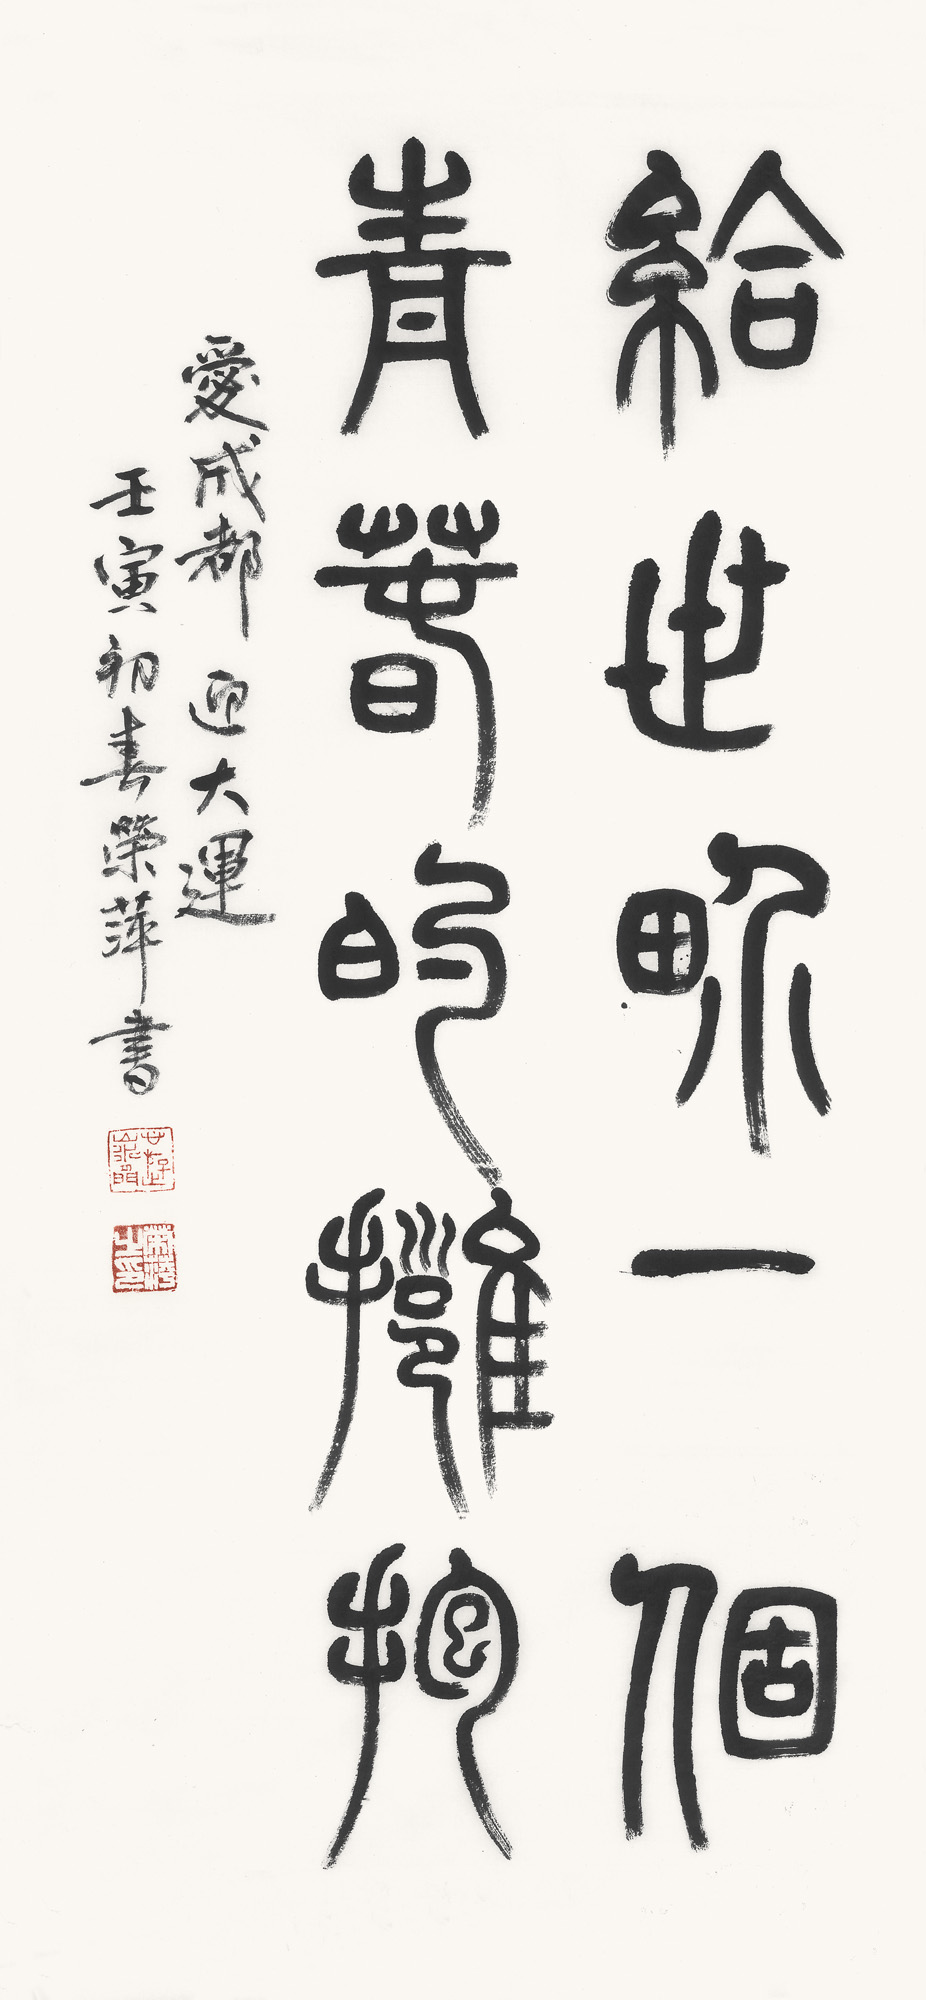 給世界一個
青春的擁抱
愛成都 迎大運
壬寅初春榮萍書